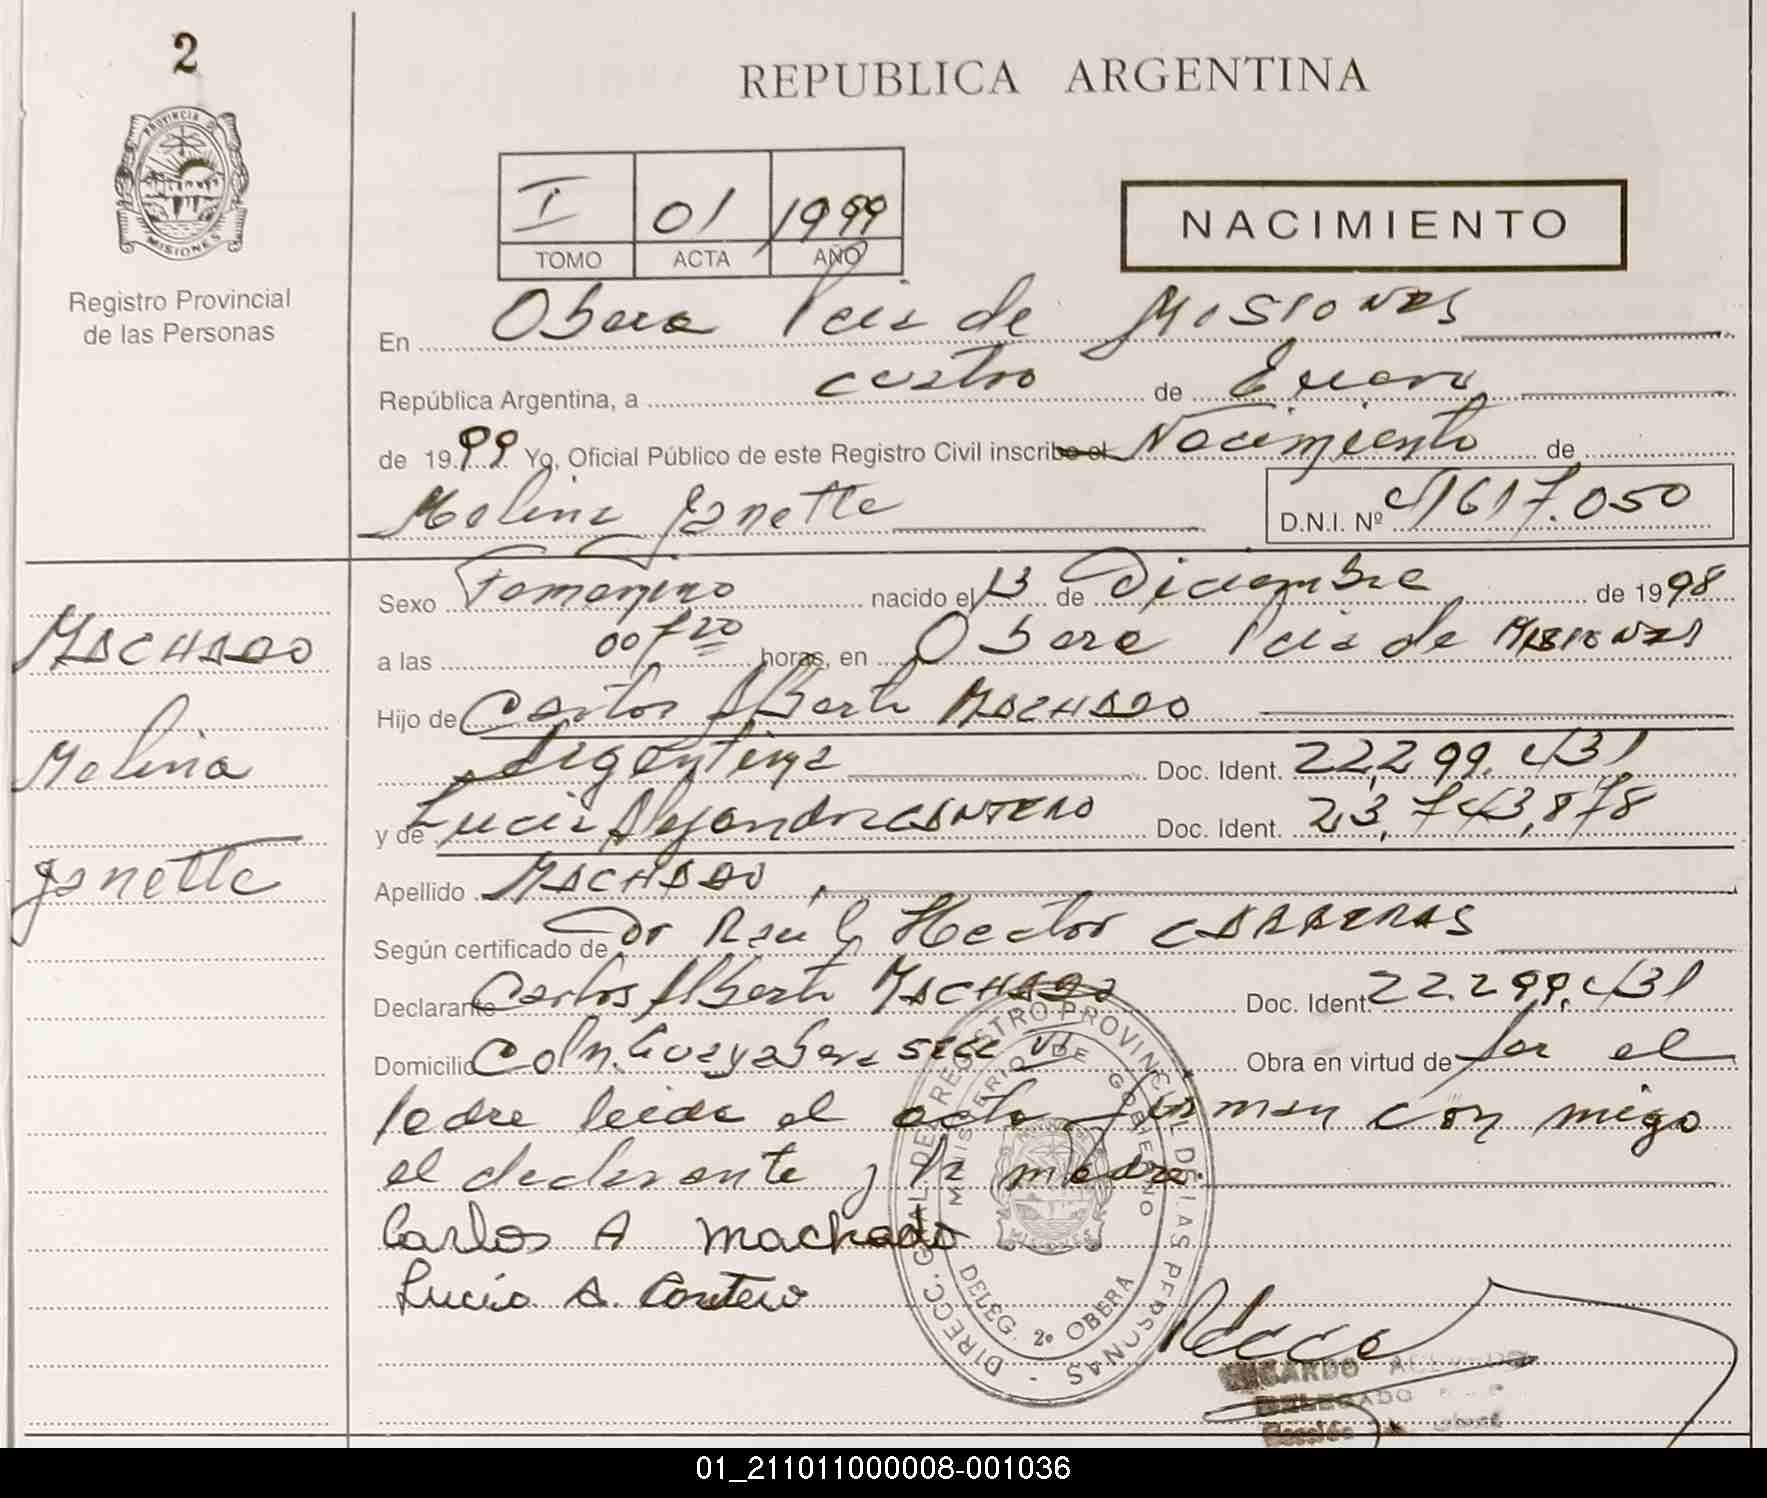 2
REPUBLICA ARGENTINA
PROVINCIA DE
MISIONES
Registro Provincial
de las Personas
I 01 1999
TOMO ACTA AÑO
NACIMIENTO
En Obera Pcia de MISIONES
República Argentina, a cuatro de Enero
de 1999 Yo, Oficial Público de este Registro Civil inscribo el Nacimiento de
Melina Janette D.N.I. Nº 41617.050
Sexo Femenino nacido el 13 de Diciembre de 1998
a las 00 y 20 horas, en Obera Pcia de MISIONES
MACHADO
Hijo de Carlos Alberto MACHADO
Melina
Argentina Doc. Ident. 22,299.431
y de Lucia Alejandra CANTERO Doc. Ident. 23,743,878
Janette
Apellido MACHADO
Según certificado de Dr Raúl Hector CARRERAS
Declarante Carlos Alberto MACHADO Doc. Ident. 22.299.431
Domicilio Coln. Guayabera secc VI Obra en virtud de ser el
Padre leida el acta firman con migo
el declarante y la madre
Carlos A Machado
Lucia A. Cantero
DIRECC. GRAL. DE REGISTRO PROVINCIAL DE LAS PERSONAS -
MINISTERIO DE GOBIERNO
MISIONES
DELEG. 2º OBERA
RICARDO
DELEGADO
01_211011000008-001036